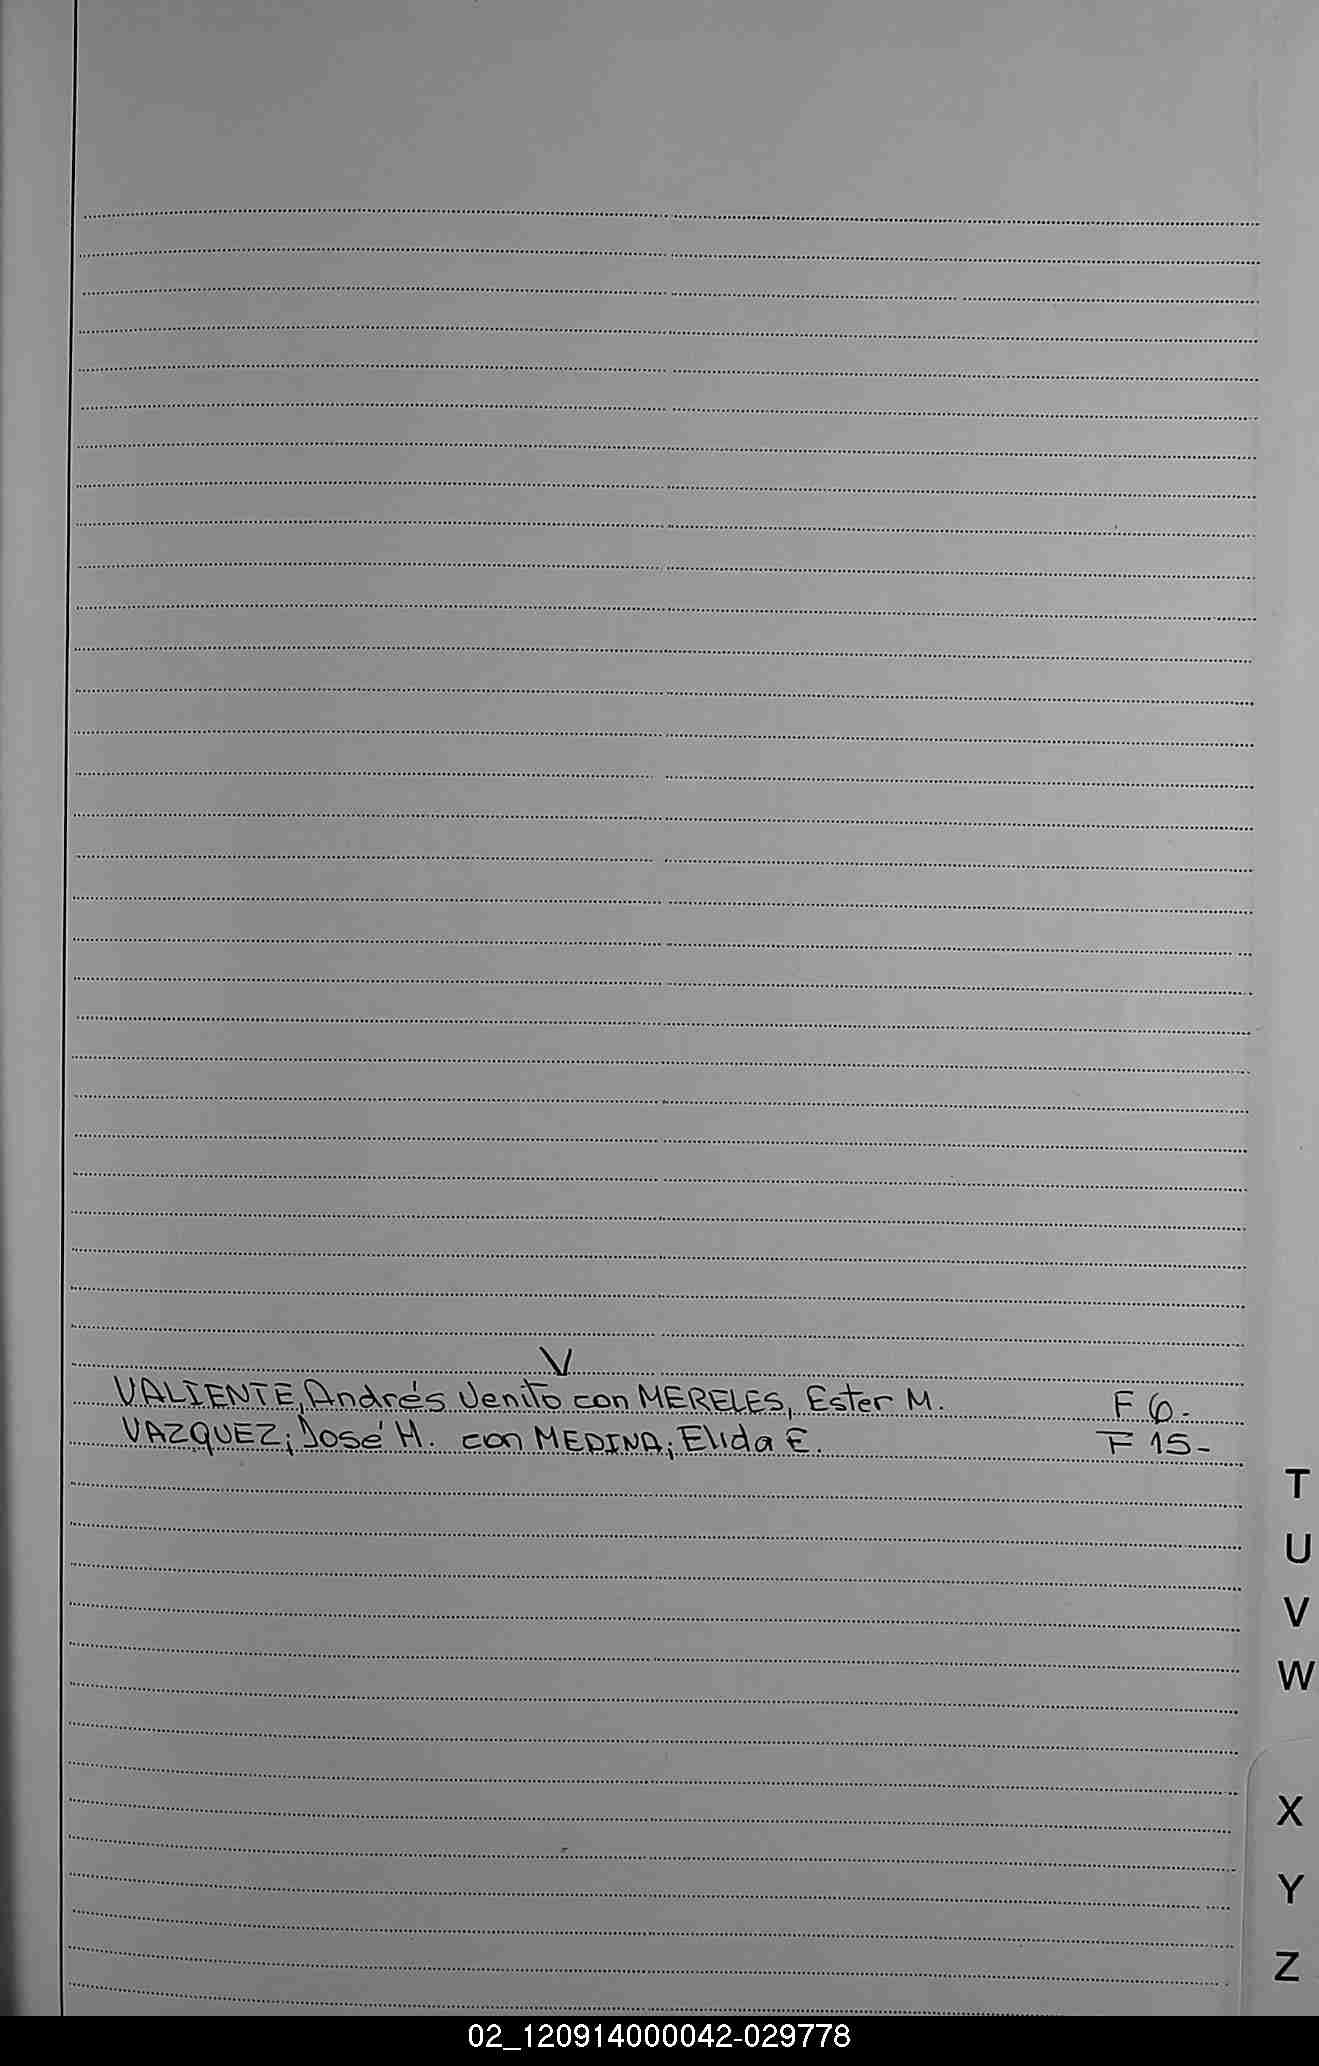 V
VALIENTE, Andrés Venito con MERELES, Ester M. F 6.-
VAZQUEZ; José H. con MEDINA; Elida E. F 15-
T
U
V
W
X
Y
Z
02_120914000042-029778